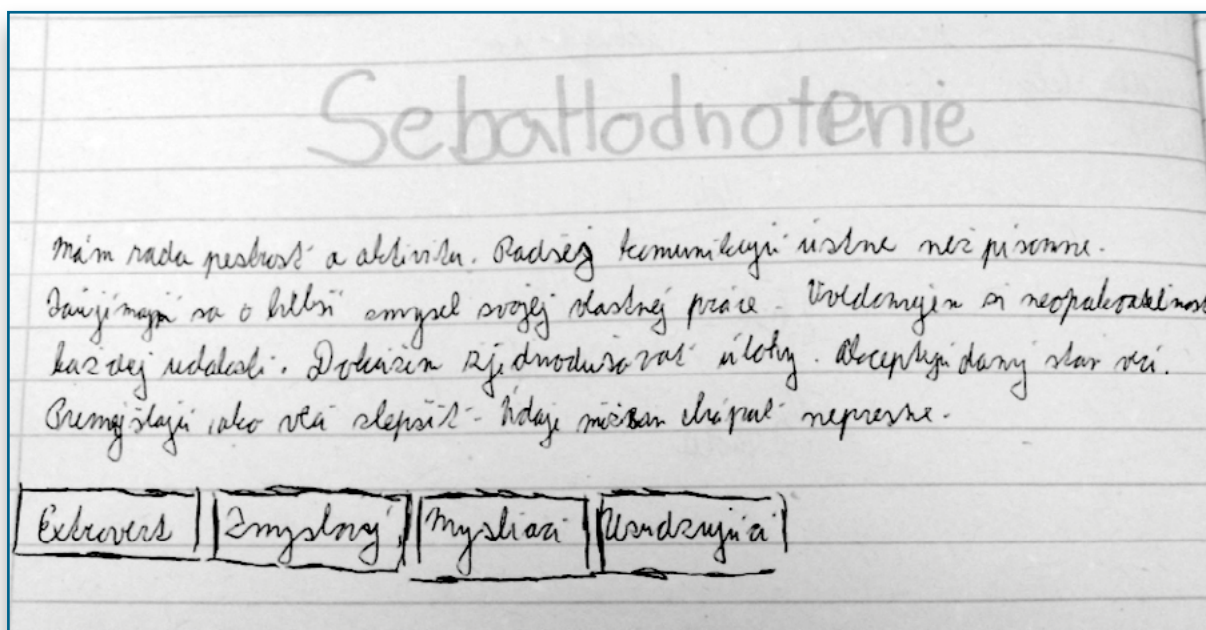 SebaHodnotenie
Mám rada pestrosť a aktivitu. Radšej komunikujú ústne než písomne.
Zaujímajú sa o hlbší zmysel svojej vlastnej práce. Uvedomujem si neopakovateľnosť
každej udalosti. Dokážem zjednodušovať úlohy. Akceptuji daný stav vecí.
Premýšľajú, ako veci zlepšiť. Údaje môžem chápať nepresne.
Extrovert Zmyslový Mysliaci Usudzujúci